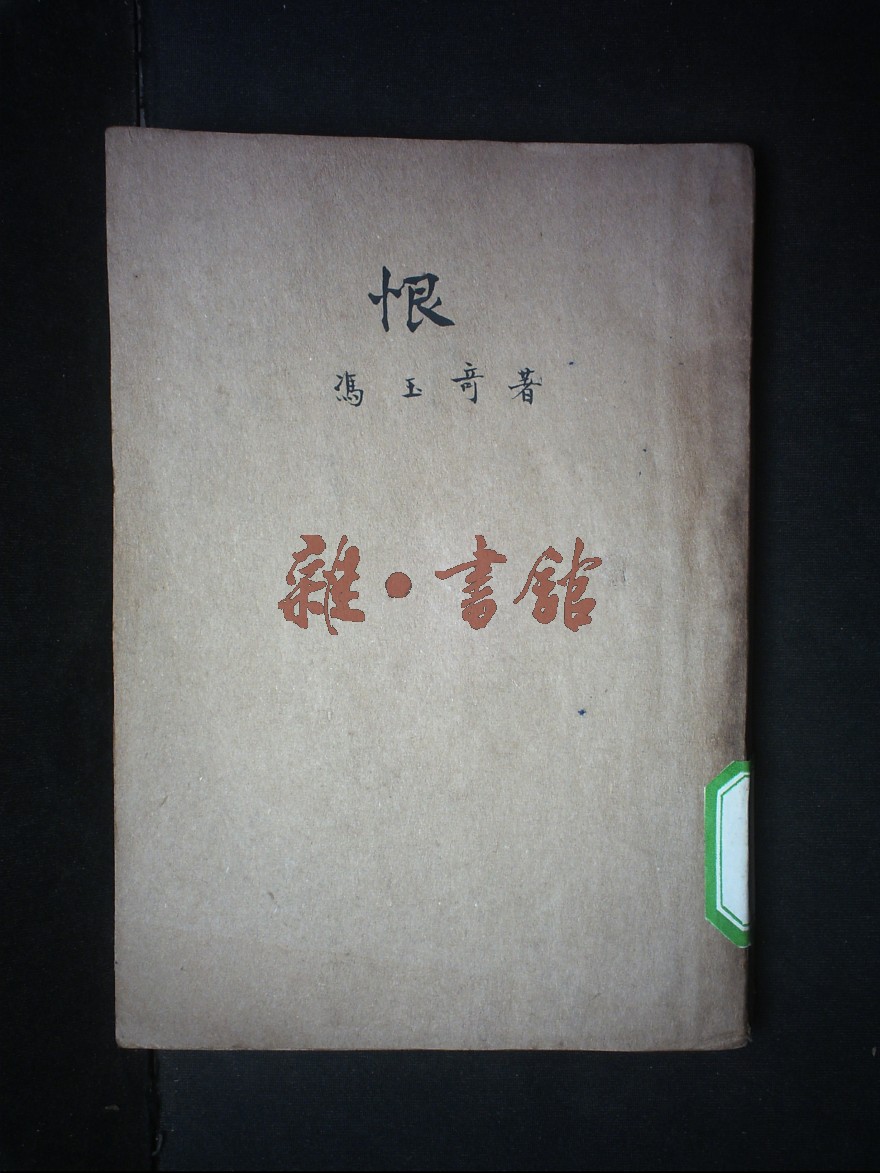 恨
馮玉奇著
雜·書館